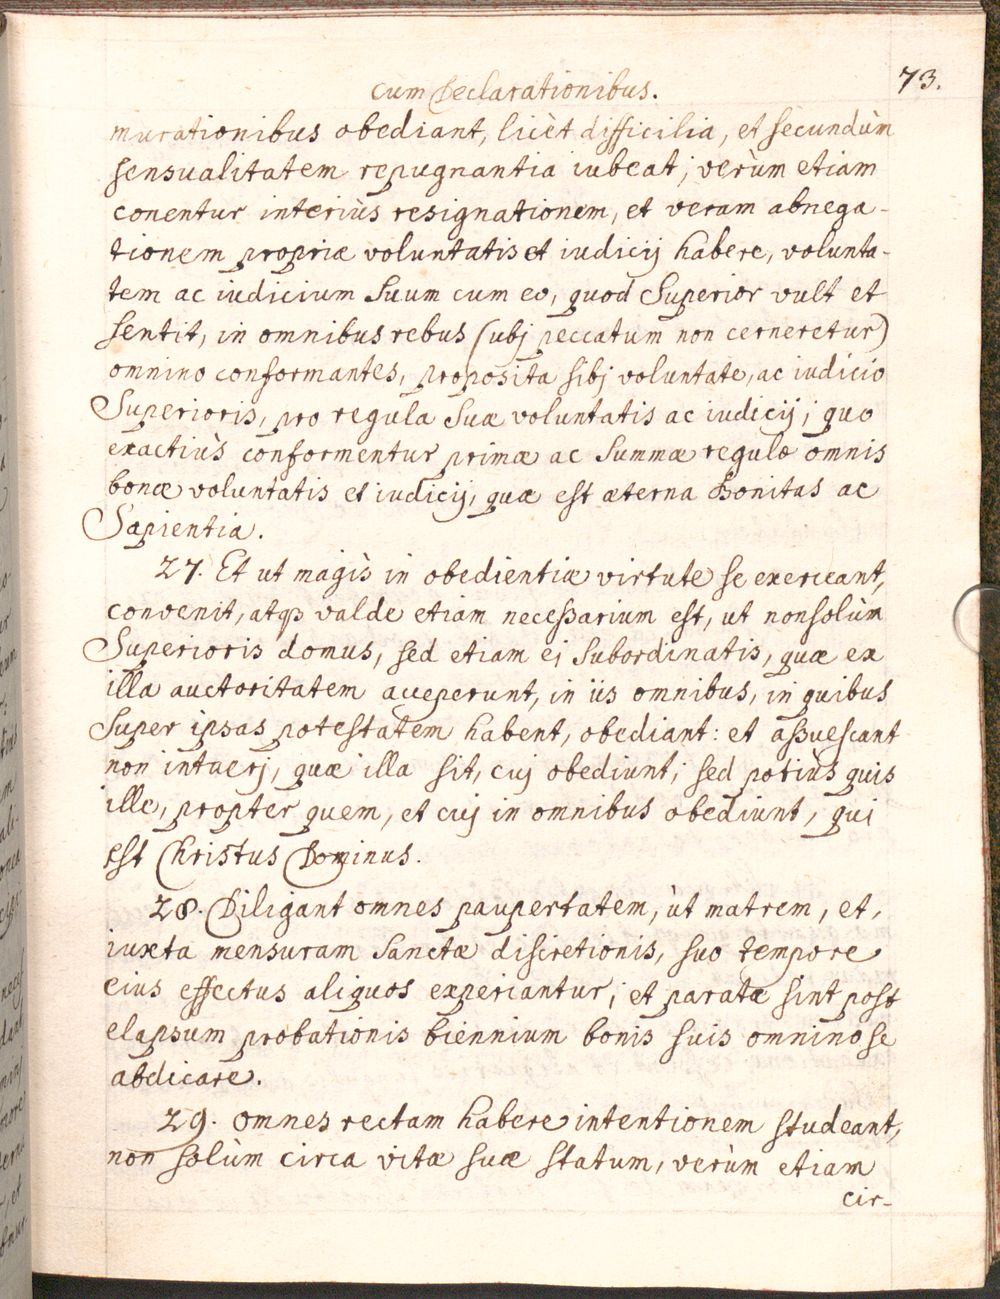 cum Declarationibus.
73.
murationibus obediant, licèt difficilia, et secundùm
sensualitatem repugnantia iubeat; verùm etiam
conentur interiùs resignationem, et veram abnega-
tionem propriæ voluntatis et iudicij habere, volunta-
tem ac iudicium Suum cum eo, quod Superior vult et
sentit, in omnibus rebus (ubj peccatum non cerneretur)
omnino conformantes, proposita sibj voluntate, ac iudicio
Superioris, pro regula Suæ voluntatis ac iudicij; quo
exactiùs conformentur primæ ac Summæ regulæ omnis
bonæ voluntatis et iudicij, quæ est æterna Bonitas ac
Sapientia.
27. Et ut magìs in obedientiæ virtute se exerceant,
convenit, atqꝫ valde etiam necessarium est, ut non solùm
Superioris domus, sed etiam ej Subordinatis, quæ ex
illa auctoritatem acceperunt, in iis omnibus, in quibus
Super ipsas potestatem habent, obediant: et assuescant
non intuerj, quæ illa sit, cuj obediunt; sed potiùs quis
ille, propter quem, et cuj in omnibus obediunt, quj
est Christus Dominus.
28. Diligant omnes paupertatem, ùt matrem, et,
iuxta mensuram Sanctæ discretionis, suo tempore
eius effectus aliquos experiantur; et paratæ sint post
elapsum probationis biennium bonis suis omnino se
abdicare.
29. Omnes rectam habere intentionem studeant,
non solùm circa vitæ suæ statum, verùm etiam
cir-